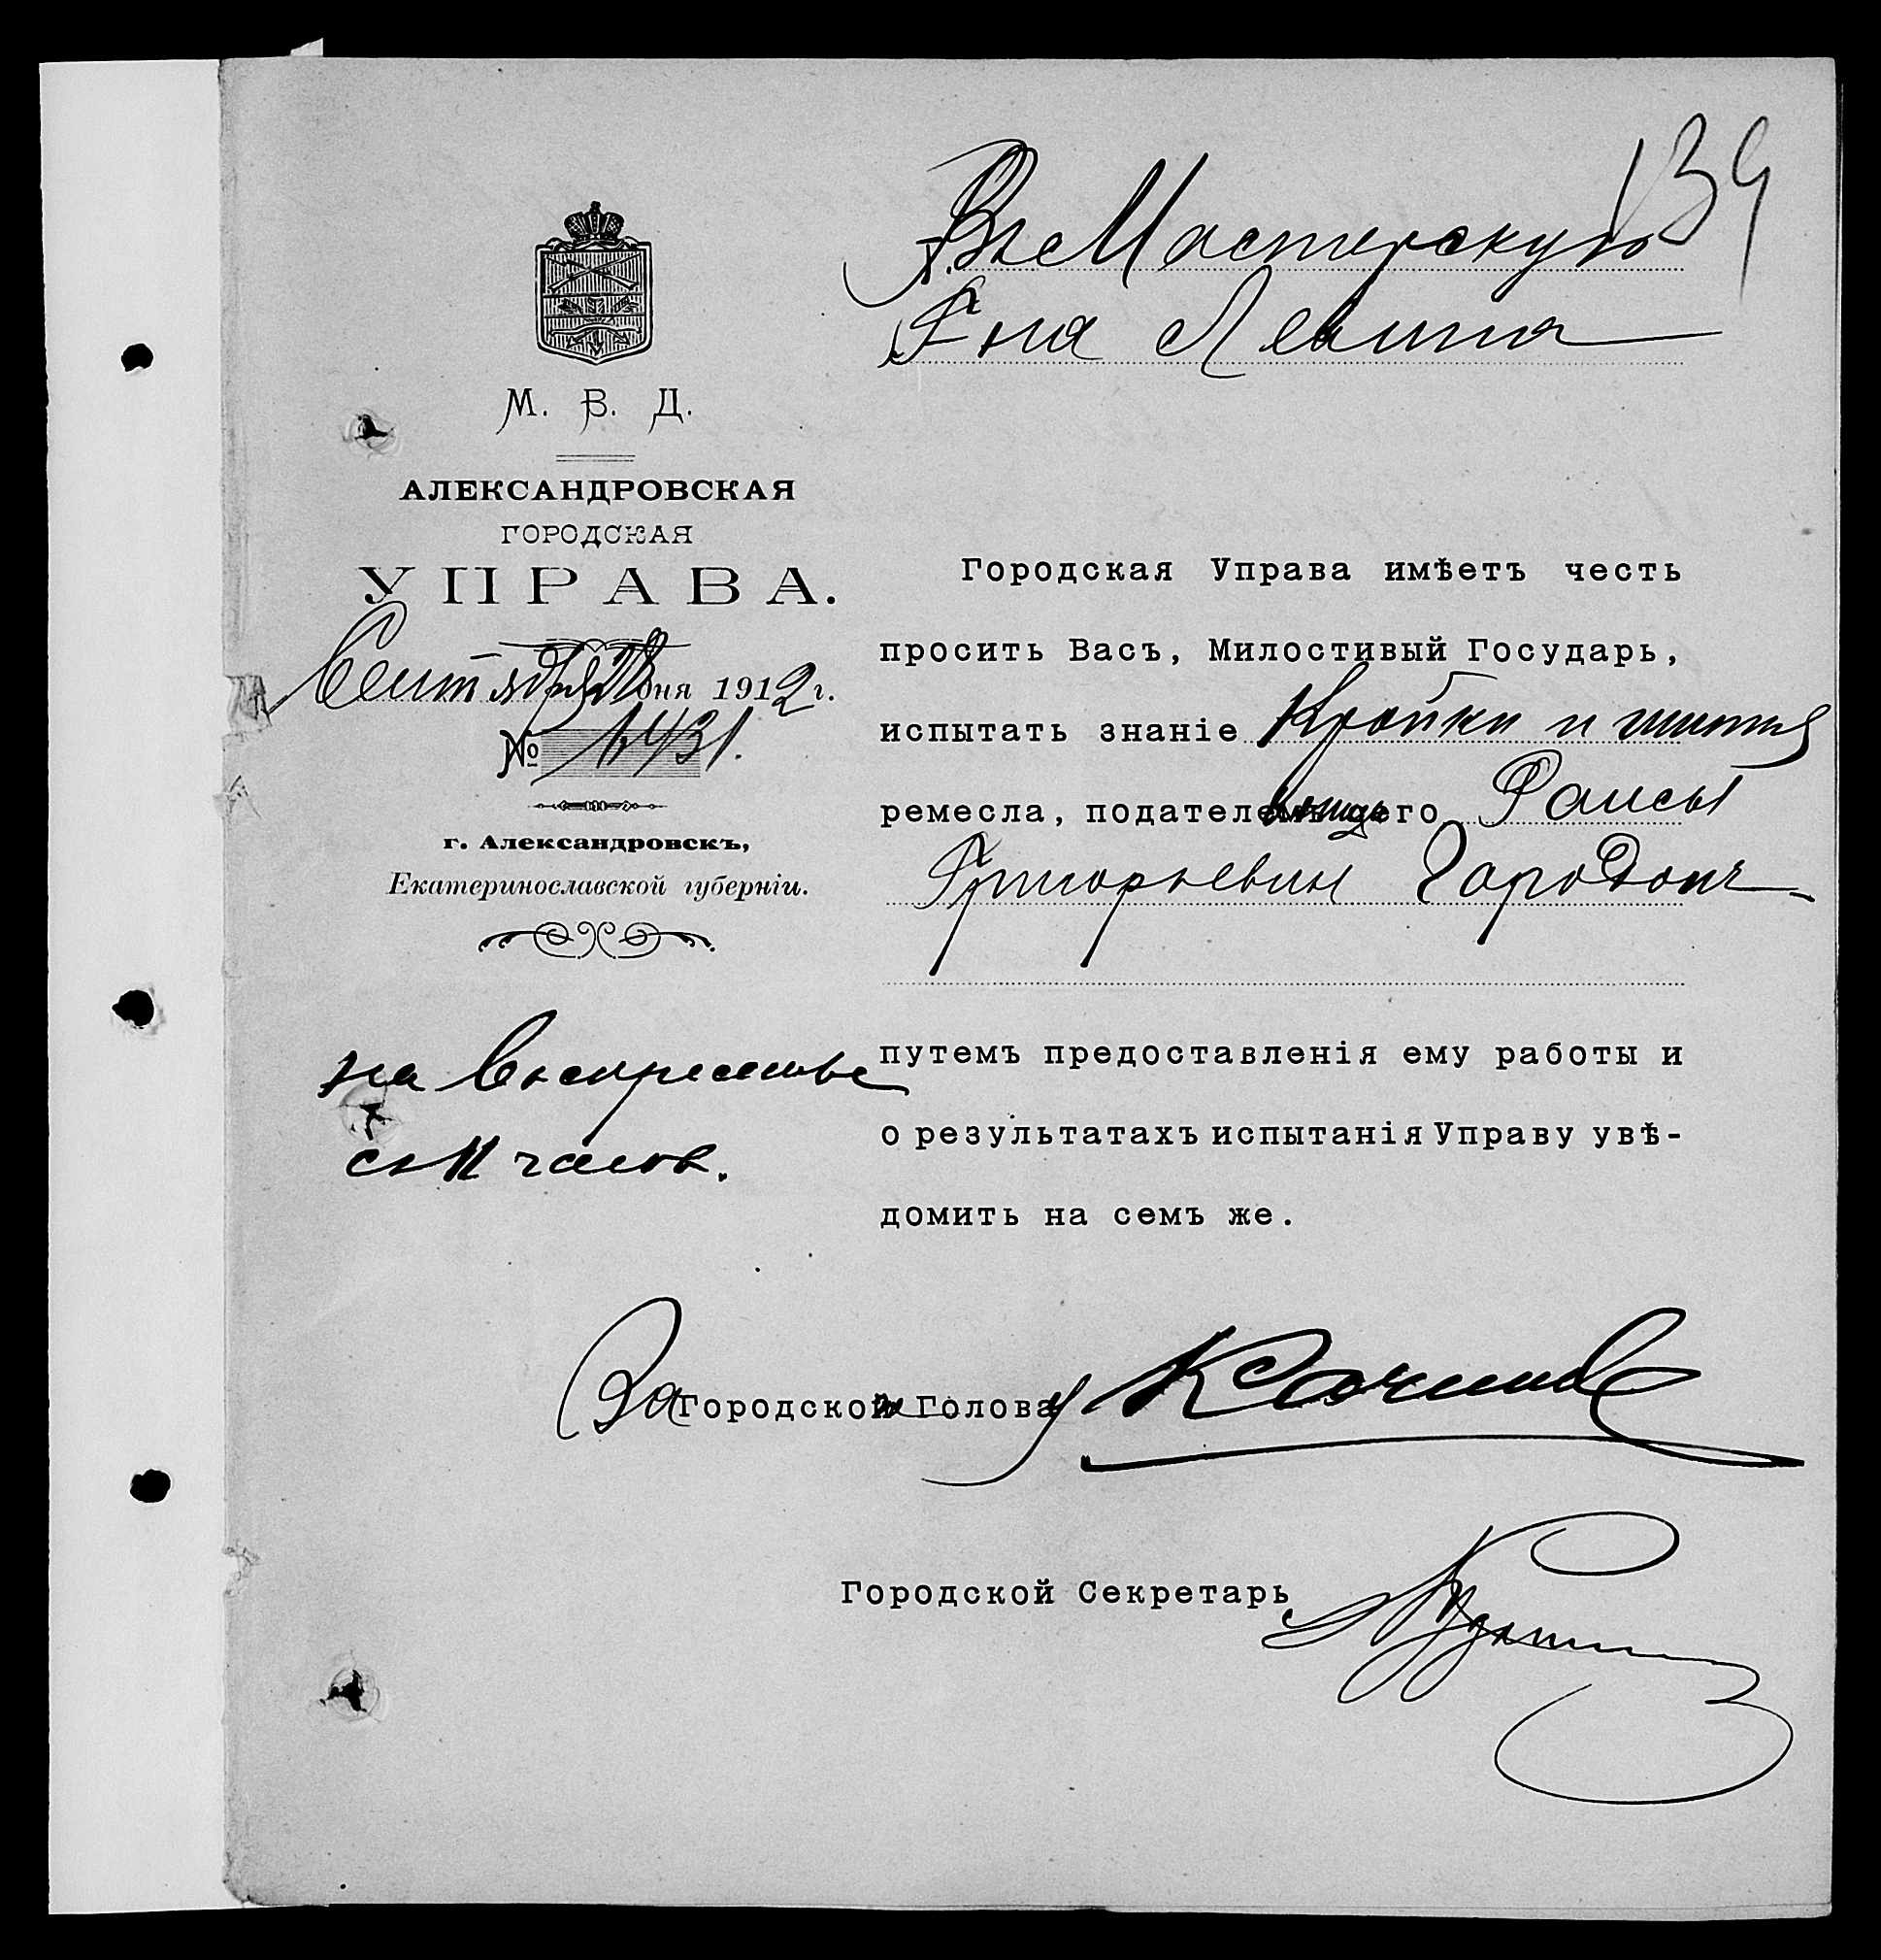 139
Въ Мастерскую
Г-на Левина
М. В. Д.
АЛЕКСАНДРОВСКАЯ
ГОРОДСКАЯ
УПРАВА.
Сентября дня 1912 г.
№ 6431.
г. Александровскъ,
Екатеринославской губерніи.
на воскресенье
съ 11 часов.
Городская Управа имѣетъ честь
просить Васъ, Милостивый Государь,
испытать знаніе Кройки и шитья
ремесла, подател его Раисы
Григорьевны
путемъ предоставленія ему работы и
о результатахъ испытанія Управу увѣ-
домить на семъ же.
За Городской Голову
Городской Секретарь